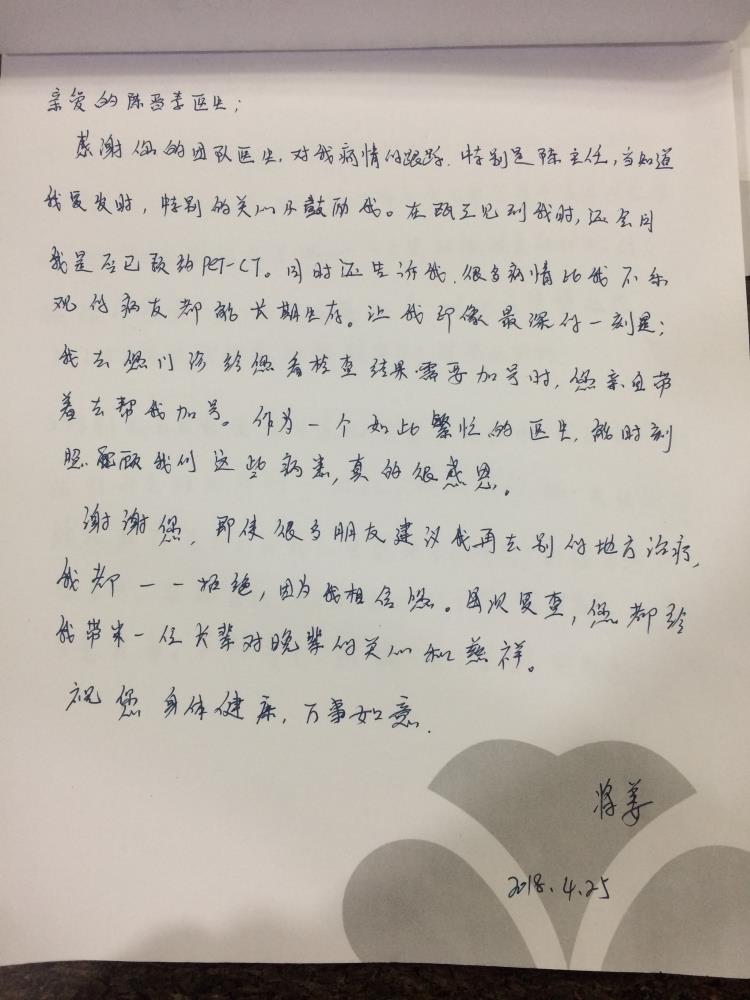 亲爱的陈晋李医生；
感谢您的团队医生，对我病情的跟踪，特别是陈主任，当知道
我复发时，特别的关心及鼓励我。在瓯江见到我时，还会问
我是否已预约PET-CT。同时还告诉我，很多病情比我不乐
观的病友都能长期生存。让我印像最深的一刻是；
我去您门诊给您看检查结果需要加号时，您亲自带
着去帮我加号。作为一个如此繁忙的医生，能时刻
照顾我们这些病患，真的很感恩。
谢谢您，即使很多朋友建议我再去别的地方治疗，
我都一一拒绝，因为我相信您。每次复查，您都给
我带来一位长辈对晚辈的关心和慈祥。
祝您身体健康，万事如意.
2018.4.25